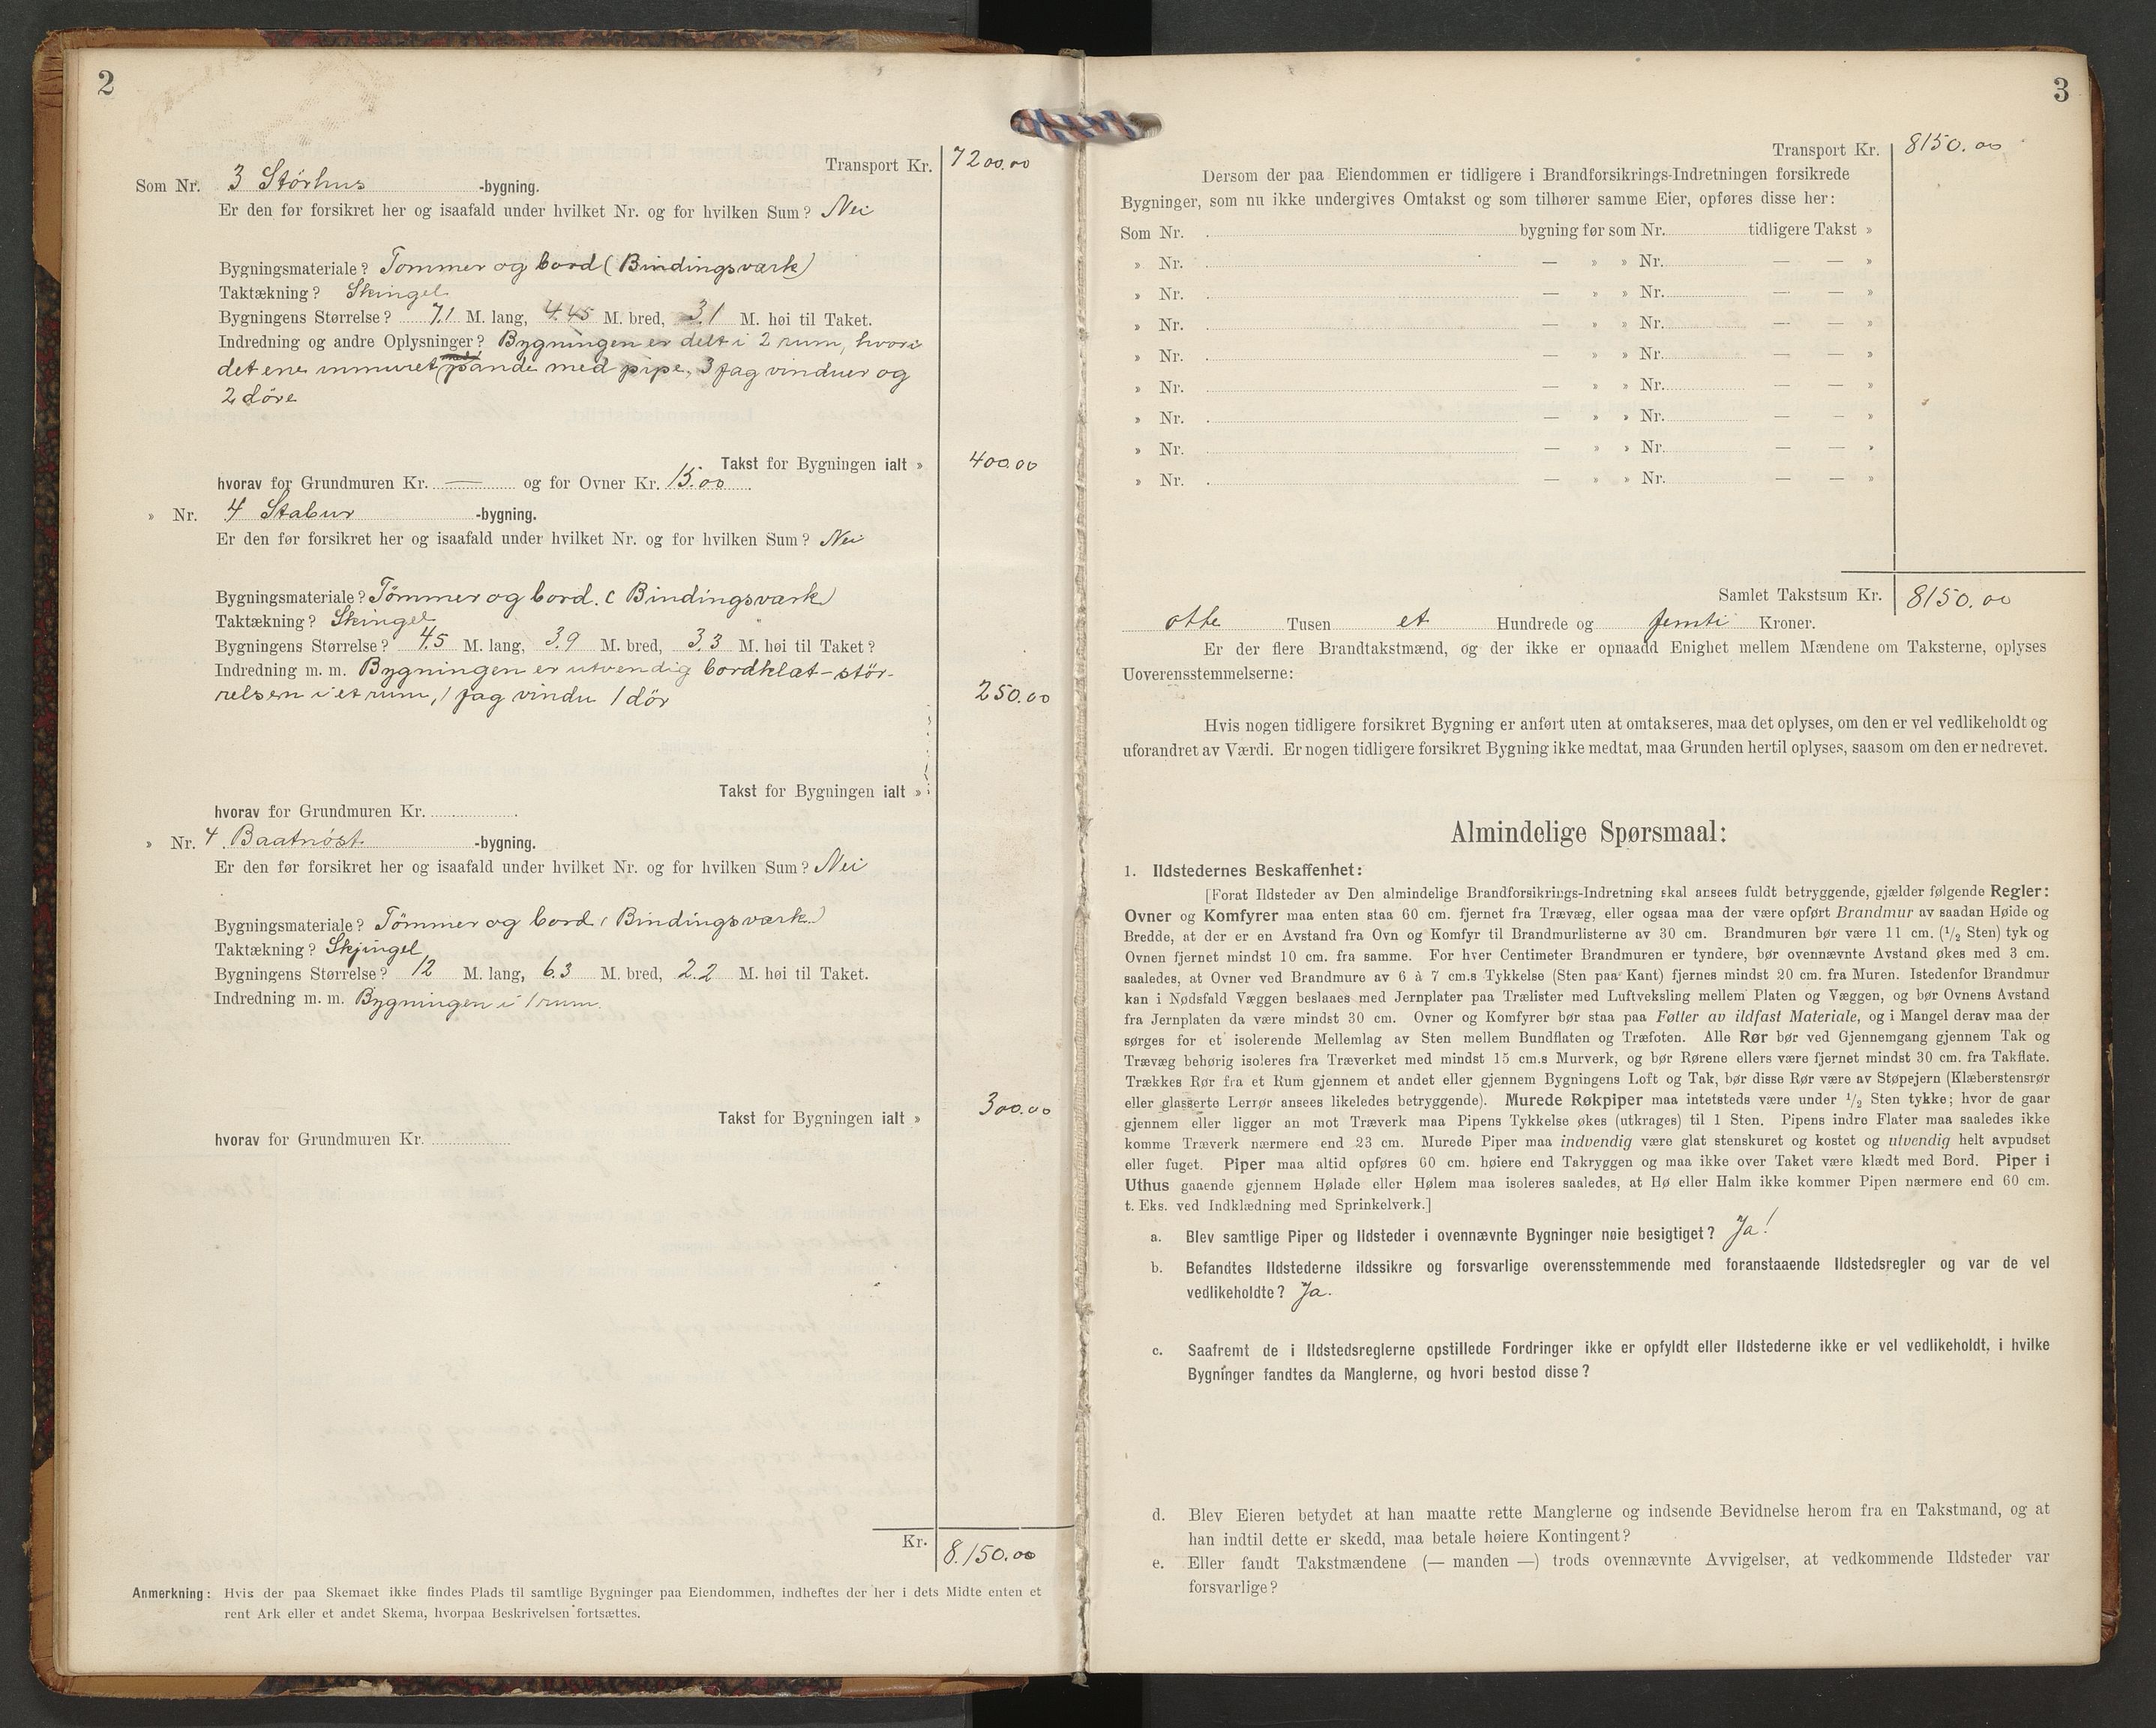 2
Transport Kr. 7200.00
Som Nr. 3 Störhus -bygning.
Er den før forsikret her og isaafald under hvilket Nr. og for hvilken Sum? Nei
Bygningsmateriale? Tömmer og bord (Bindingsværk)
Taktækning? Skingel
Bygningens Størrelse? 7.1 M. lang, 4.45 M. bred, 3.1 M. høi til Taket.
Indredning og andre Oplysninger? Bygningen er delt i 2 rum, hvori
det ene inmuret pande med pipe, 3 fag vinduer og
2 döre
Takst for Bygningen ialt » 400.00
hvorav for Grundmuren Kr. — og for Ovner Kr. 15.00
» Nr. 4 Stabur -bygning.
Er den før forsikret her og isaafald under hvilket Nr. og for hvilken Sum? Nei
Bygningsmateriale? Tömmer og bord. (Bindingsværk)
Taktækning? Skingel
Bygningens Størrelse? 4.5 M. lang, 3.9 M. bred, 3.3 M. høi til Taket?
Indredning m. m. Bygningen er utvendig bordklæt - stör-
relsen i et rum, 1 fag vindu 1 dör 250.00
Takst for Bygningen ialt »
hvorav for Grundmuren Kr.
» Nr. 4. Baatnöst -bygning.
Er den før forsikret her og isaafald under hvilket Nr. og for hvilken Sum? Nei
Bygningsmateriale? Tömmer og bord (Bindingsværk)
Taktækning? Skjingel
Bygningens Størrelse? 12 M. lang, 6.3 M. bred, 2.2 M. høi til Taket.
Indredning m. m. Bygningen i 1 rum.
Takst for Bygningen ialt » 300.00
hvorav for Grundmuren Kr.
Kr. 8.150.00
Anmerkning: Hvis der paa Skemaet ikke findes Plads til samtlige Bygninger paa Eiendommen, indheftes der her i dets Midte enten et
rent Ark eller et andet Skema, hvorpaa Beskrivelsen fortsættes.
3
Transport Kr. 8150.00
Dersom der paa Eiendommen er tidligere i Brandforsikrings-Indretningen forsikrede
Bygninger, som nu ikke undergives Omtakst og som tilhører samme Eier, opføres disse her:
Som Nr. bygning før som Nr. tidligere Takst »
» Nr. — » » Nr. — — »
» Nr. — » » Nr. — — »
» Nr. — » » Nr. — — »
» Nr. — » » Nr. — — »
» Nr. — » » Nr. — — »
» Nr. — » » Nr. — — »
» Nr. — » » Nr. — — »
» Nr. — » » Nr. — — »
Samlet Takstsum Kr. 8150.00
otte Tusen et Hundrede og femti Kroner.
Er der flere Brandtakstmænd, og der ikke er opnaadd Enighet mellem Mændene om Taksterne, oplyses
Uoverensstemmelserne:
Hvis nogen tidligere forsikret Bygning er anført uten at omtakseres, maa det oplyses, om den er vel vedlikeholdt og
uforandret av Værdi. Er nogen tidligere forsikret Bygning ikke medtat, maa Grunden hertil oplyses, saasom om den er nedrevet.
Almindelige Spørsmaal:
1. Ildstedernes Beskaffenhet:
[Forat Ildsteder av Den almindelige Brandforsikrings-Indretning skal ansees fuldt betryggende, gjælder følgende Regler:
Ovner og Komfyrer maa enten staa 60 cm. fjernet fra Trævæg, eller ogsaa maa der være opført Brandmur av saadan Høide og
Bredde, at der er en Avstand fra Ovn og Komfyr til Brandmurlisterne av 30 cm. Brandmuren bør være 11 cm. (1/2 Sten) tyk og
Ovnen fjernet mindst 10 cm. fra samme. For hver Centimeter Brandmuren er tyndere, bør ovennævnte Avstand økes med 3 cm.
saaledes, at Ovner ved Brandmure av 6 à 7 cm.s Tykkelse (Sten paa Kant) fjernes mindst 20 cm. fra Muren. Istedenfor Brandmur
kan i Nødsfald Væggen beslaaes med Jernplater paa Trælister med Luftveksling mellem Platen og Væggen, og bør Ovnens Avstand
fra Jernplaten da være mindst 30 cm. Ovner og Komfyrer bør staa paa Føtter av ildfast Materiale, og i Mangel derav maa der
sørges for et isolerende Mellemlag av Sten mellem Bundflaten og Træfoten. Alle Rør bør ved Gjennemgang gjennem Tak og
Trævæg behørig isoleres fra Træverket med mindst 15 cm.s Murverk, og bør Rørene ellers være fjernet mindst 30 cm. fra Takflate.
Trækkes Rør fra et Rum gjennem et andet eller gjennem Bygningens Loft og Tak, bør disse Rør være av Støpejern (Klæberstensrør
eller glasserte Lerrør ansees likeledes betryggende). Murede Røkpiper maa intetsteds være under 1/2 Sten tykke; hvor de gaar
gjennem eller ligger an mot Træverk maa Pipens Tykkelse økes (utkrages) til 1 Sten. Pipens indre Flater maa saaledes ikke
komme Træverk nærmere end 23 cm. Murede Piper maa indvendig være glat stenskuret og kostet og utvendig helt avpudset
eller fuget. Piper maa altid opføres 60 cm. høiere end Takryggen og maa ikke over Taket være klædt med Bord. Piper i
Uthus gaaende gjennem Hølade eller Hølem maa isoleres saaledes, at Hø eller Halm ikke kommer Pipen nærmere end 60 cm.
t. Eks. ved Indklædning med Sprinkelverk.]
a. Blev samtlige Piper og Ildsteder i ovennævnte Bygninger nøie besigtiget? Ja!
b. Befandtes Ildstederne ildssikre og forsvarlige overensstemmende med foranstaaende Ildstedsregler og var de vel
vedlikeholdte? Ja.
c. Saafremt de i Ildstedsreglerne opstillede Fordringer ikke er opfyldt eller Ildstederne ikke er vel vedlikeholdt, i hvilke
Bygninger fandtes da Manglerne, og hvori bestod disse?
d. Blev Eieren betydet at han maatte rette Manglerne og indsende Bevidnelse herom fra en Takstmand, og at
han indtil dette er skedd, maa betale høiere Kontingent?
e. Eller fandt Takstmændene (— manden —) trods ovennævnte Avvigelser, at vedkommende Ildsteder var
forsvarlige?